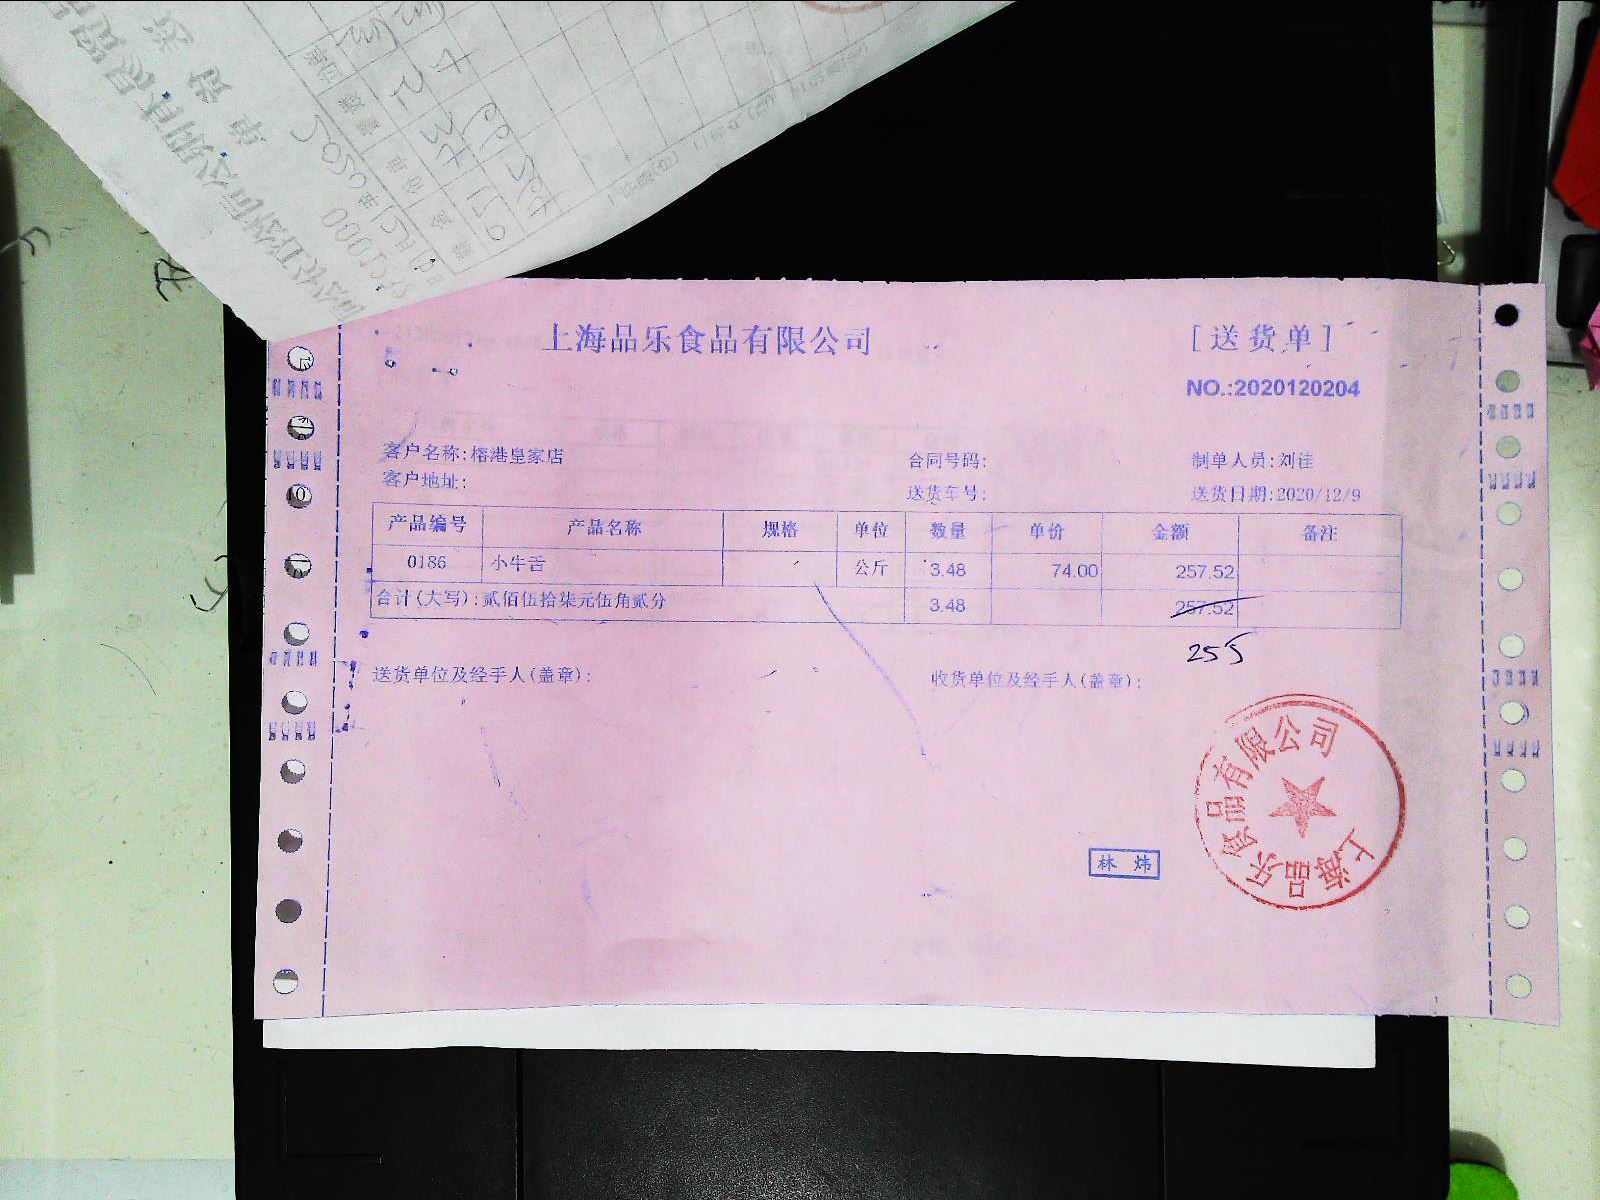 上海品乐食品有限公司
[送货单]
NO.:2020120204
客户名称:榕港皇家店 合同号码: 制单人员:刘佳
客户地址: 送货车号: 送货日期:2020/12/9
产品编号 产品名称 规格 单位 数量 单价 金额 备注
0186 小牛舌 公斤 3.48 74.00 257.52
合计(大写):贰佰伍拾柒元伍角贰分 3.48 257.52
255
送货单位及经手人(盖章): 收货单位及经手人(盖章):
林炜
上海品乐食品有限公司